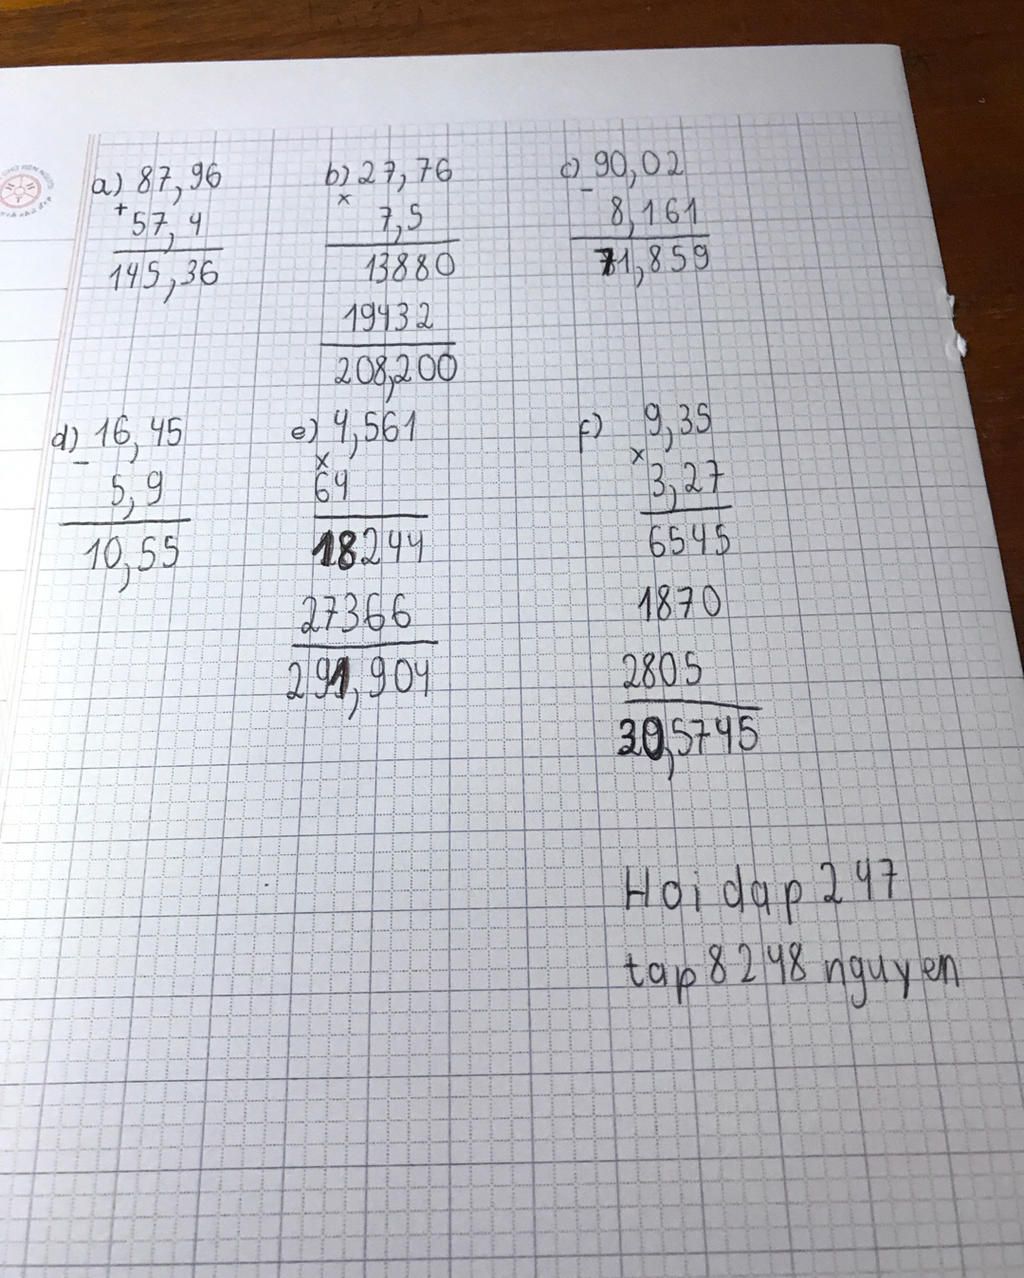 a) 87,96
+
57,4
145,36
b) 27,76
x
7,5
13880
19432
208,200
c) 90,02
-
8,161
71,859
d) 16,45
-
5,9
10,55
e) 4,561
x
64
18244
27366
291,904
f) 9,35
x
3,27
6545
1870
2805
30,5745
Hoi dap 247
tap 8248 nguyen